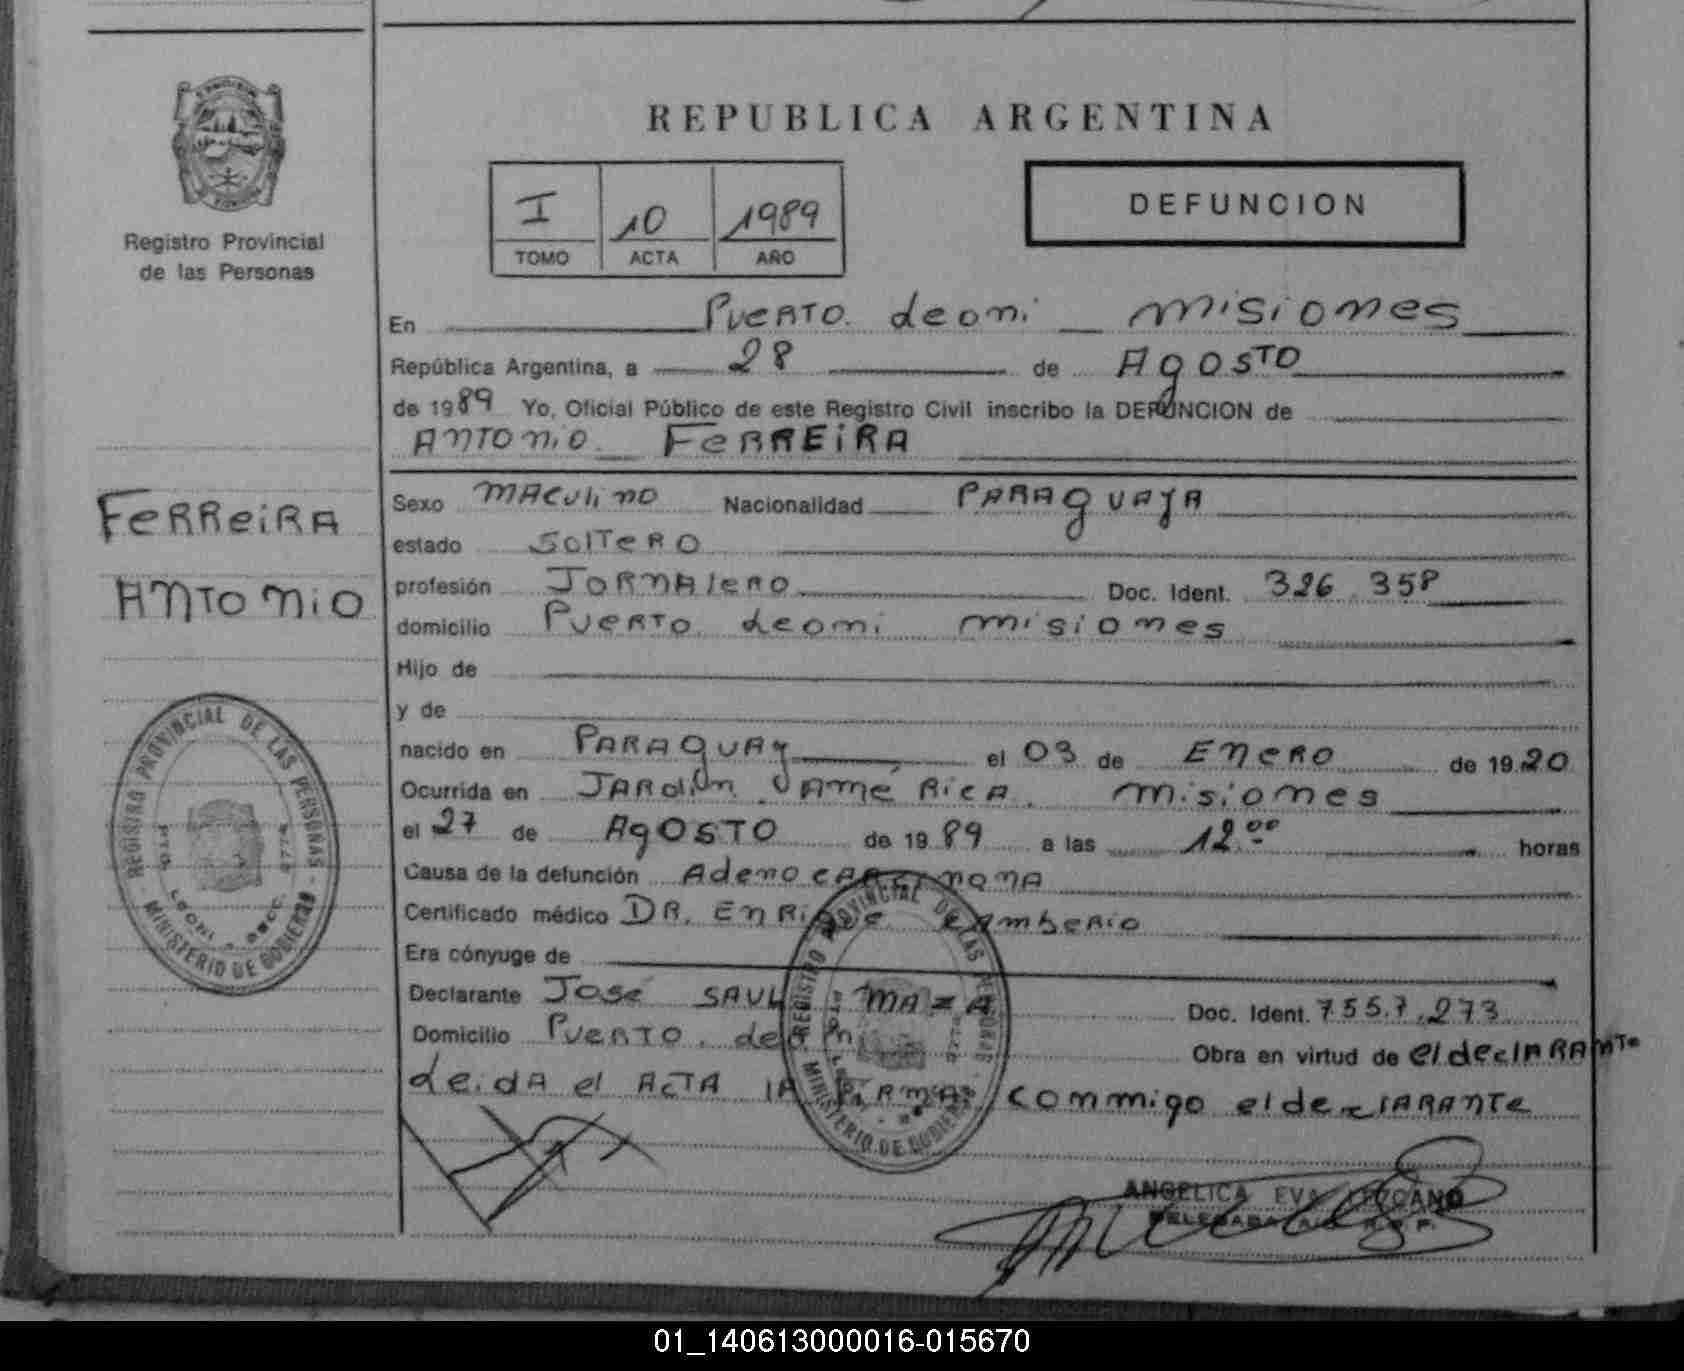 REPUBLICA ARGENTINA
Registro Provincial
de las Personas
I 10 1989
TOMO ACTA AÑO
DEFUNCION
En Puerto Leoni Misiones
República Argentina, a 28 de Agosto
de 1989 Yo, Oficial Público de este Registro Civil inscribo la DEFUNCION de
Antonio Ferreira
Ferreira
Antonio
Sexo Maculino Nacionalidad Paraguaya
estado Soltero
profesión Jornalero Doc. Ident. 326.358
domicilio Puerto Leoni Misiones
Hijo de
y de
nacido en Paraguay el 03 de Enero de 1920
Ocurrida en Jardin America Misiones
el 27 de Agosto de 1989 a las 12.00 horas
Causa de la defunción Adenocarcinoma
Certificado médico Dr. Enrique Camberio
Era cónyuge de
Declarante José Saul Maza Doc. Ident. 7557.273
Domicilio Puerto Leoni Obra en virtud de el declarante
Leida el Acta la firma conmigo el declarante
REGISTRO PROVINCIAL DE LAS PERSONAS
MINISTERIO DE GOBIERNO
PTO. LEONI
REGISTRO PROVINCIAL DE LAS PERSONAS
MINISTERIO DE GOBIERNO
ANGELICA EVA LEZCANO
DELEGADA R.P.P.
01_140613000016-015670